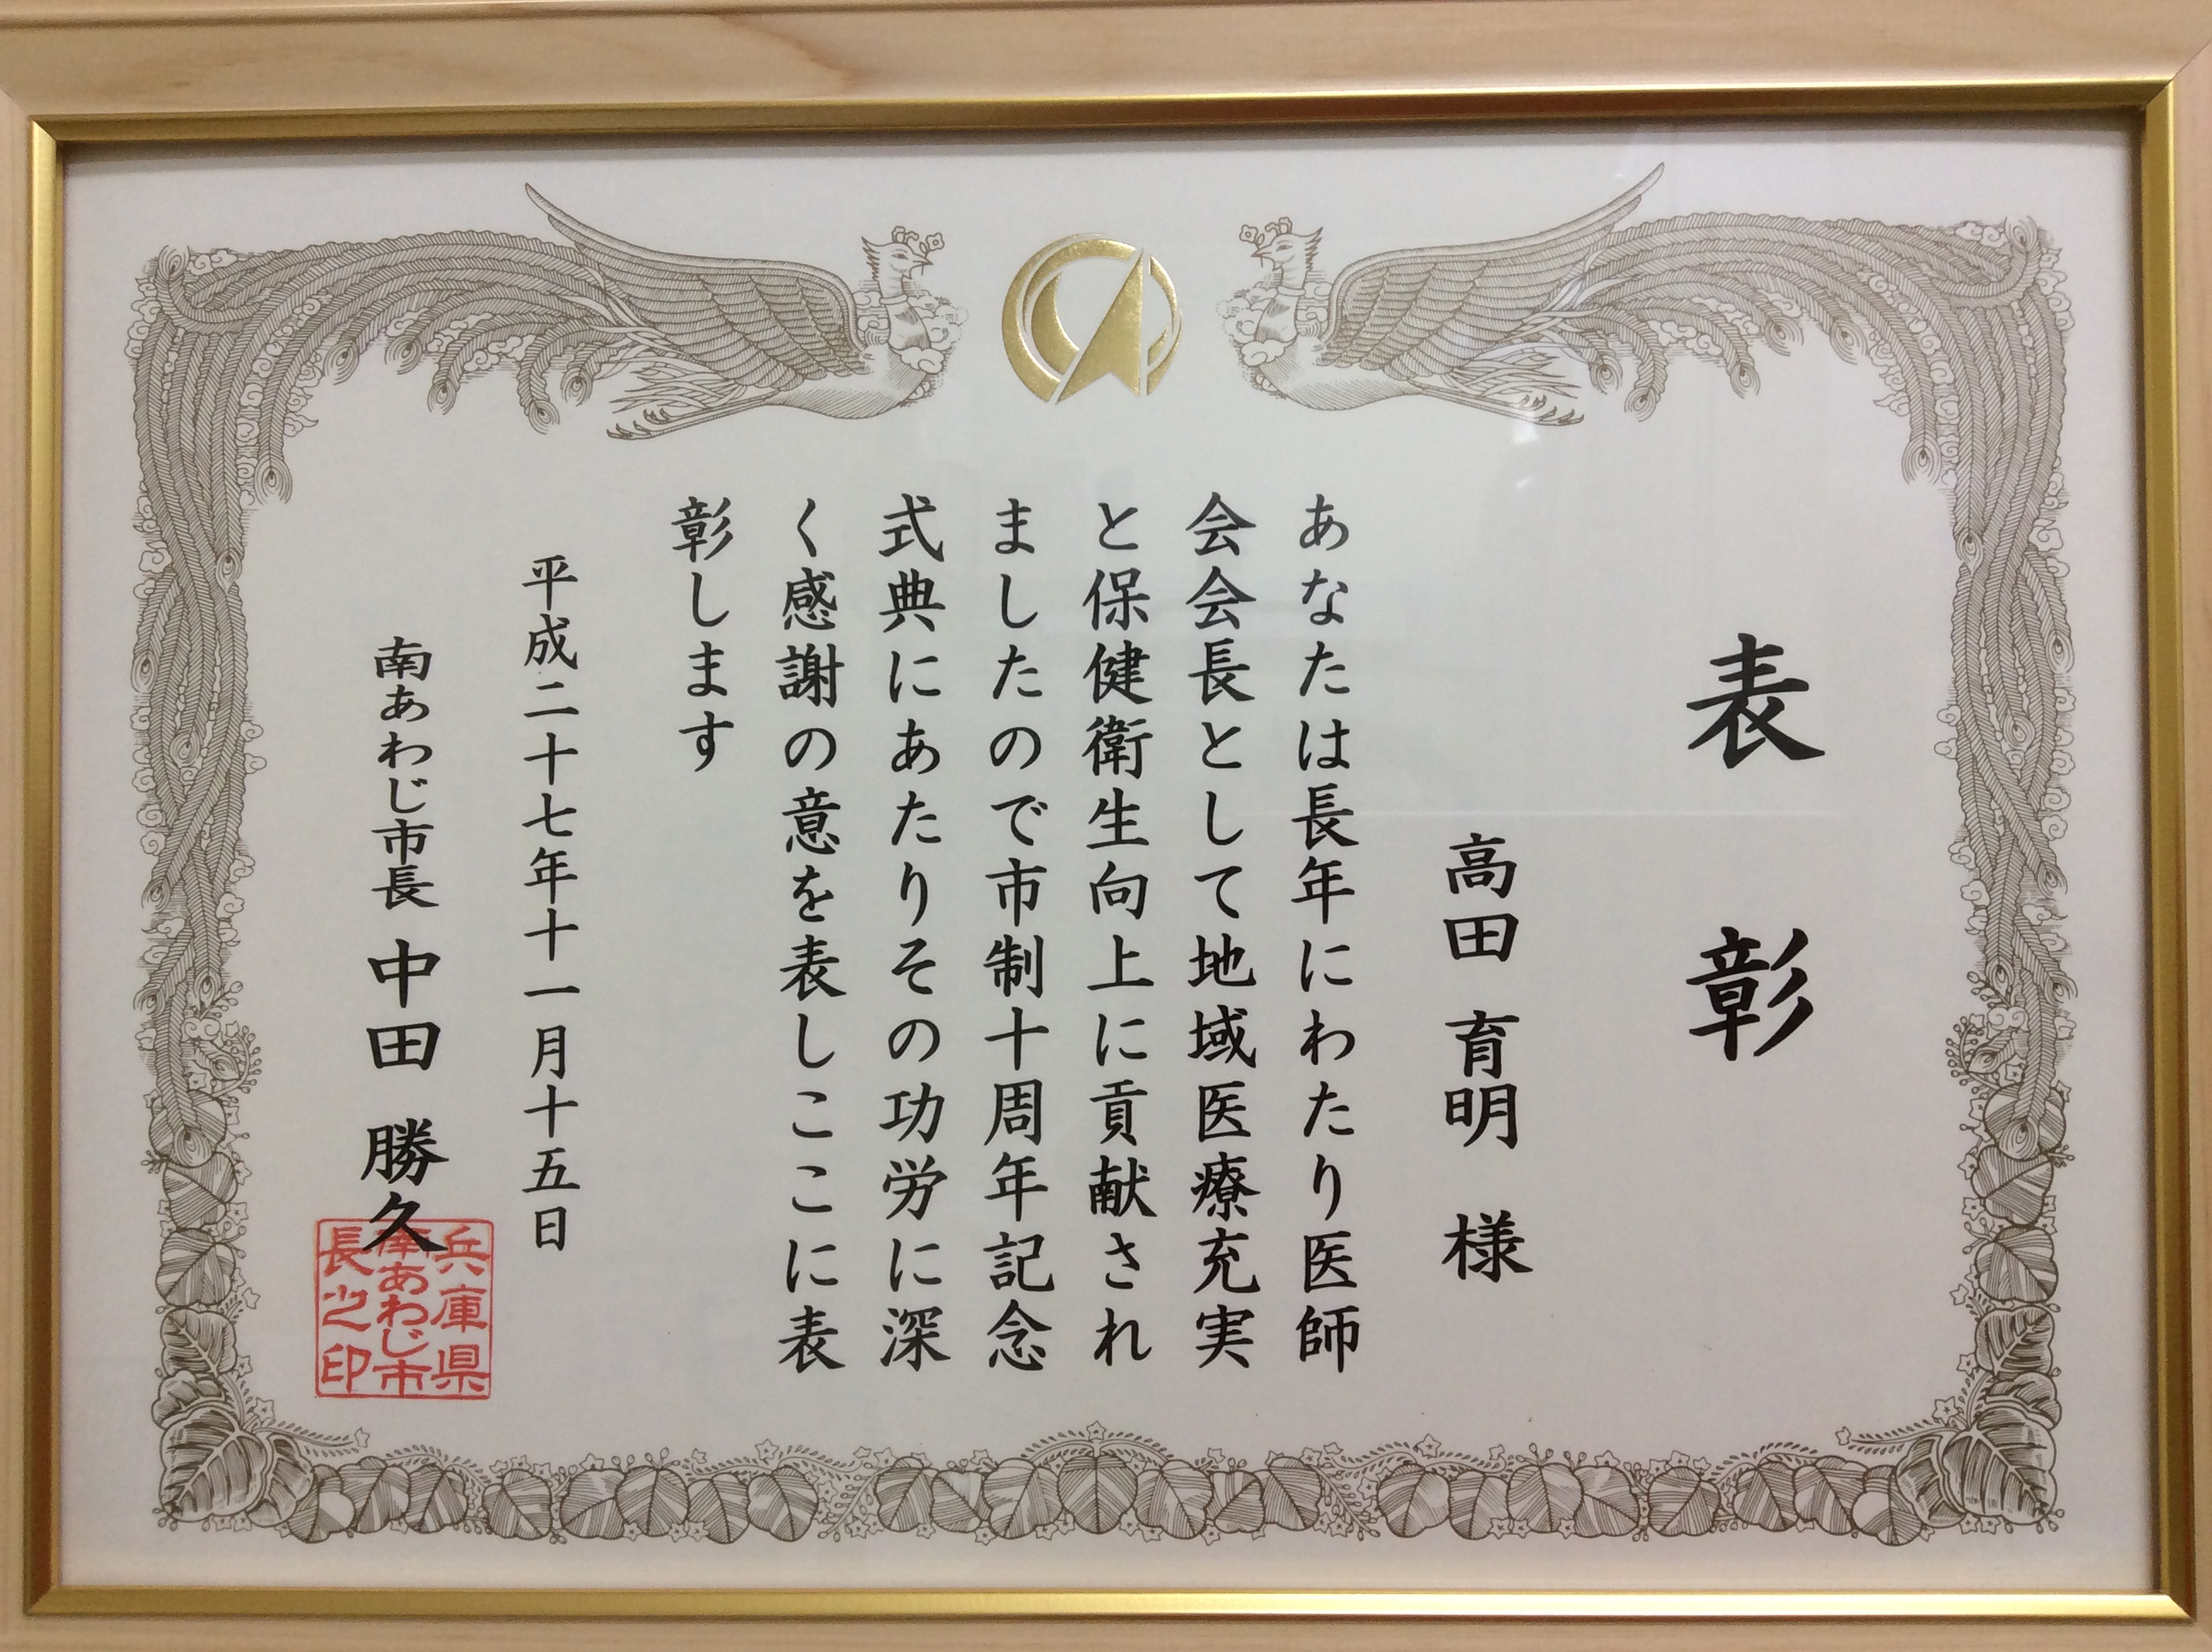 表彰
高田育明様
あなたは長年にわたり医師
会会長として地域医療充実
と保健衛生向上に貢献され
ましたので市制十周年記念
式典にあたりその功労に深
く感謝の意を表しここに表
彰します
平成二十七年十一月十五日
南あわじ市長 中田勝久
兵庫県
南あわじ市
長之印